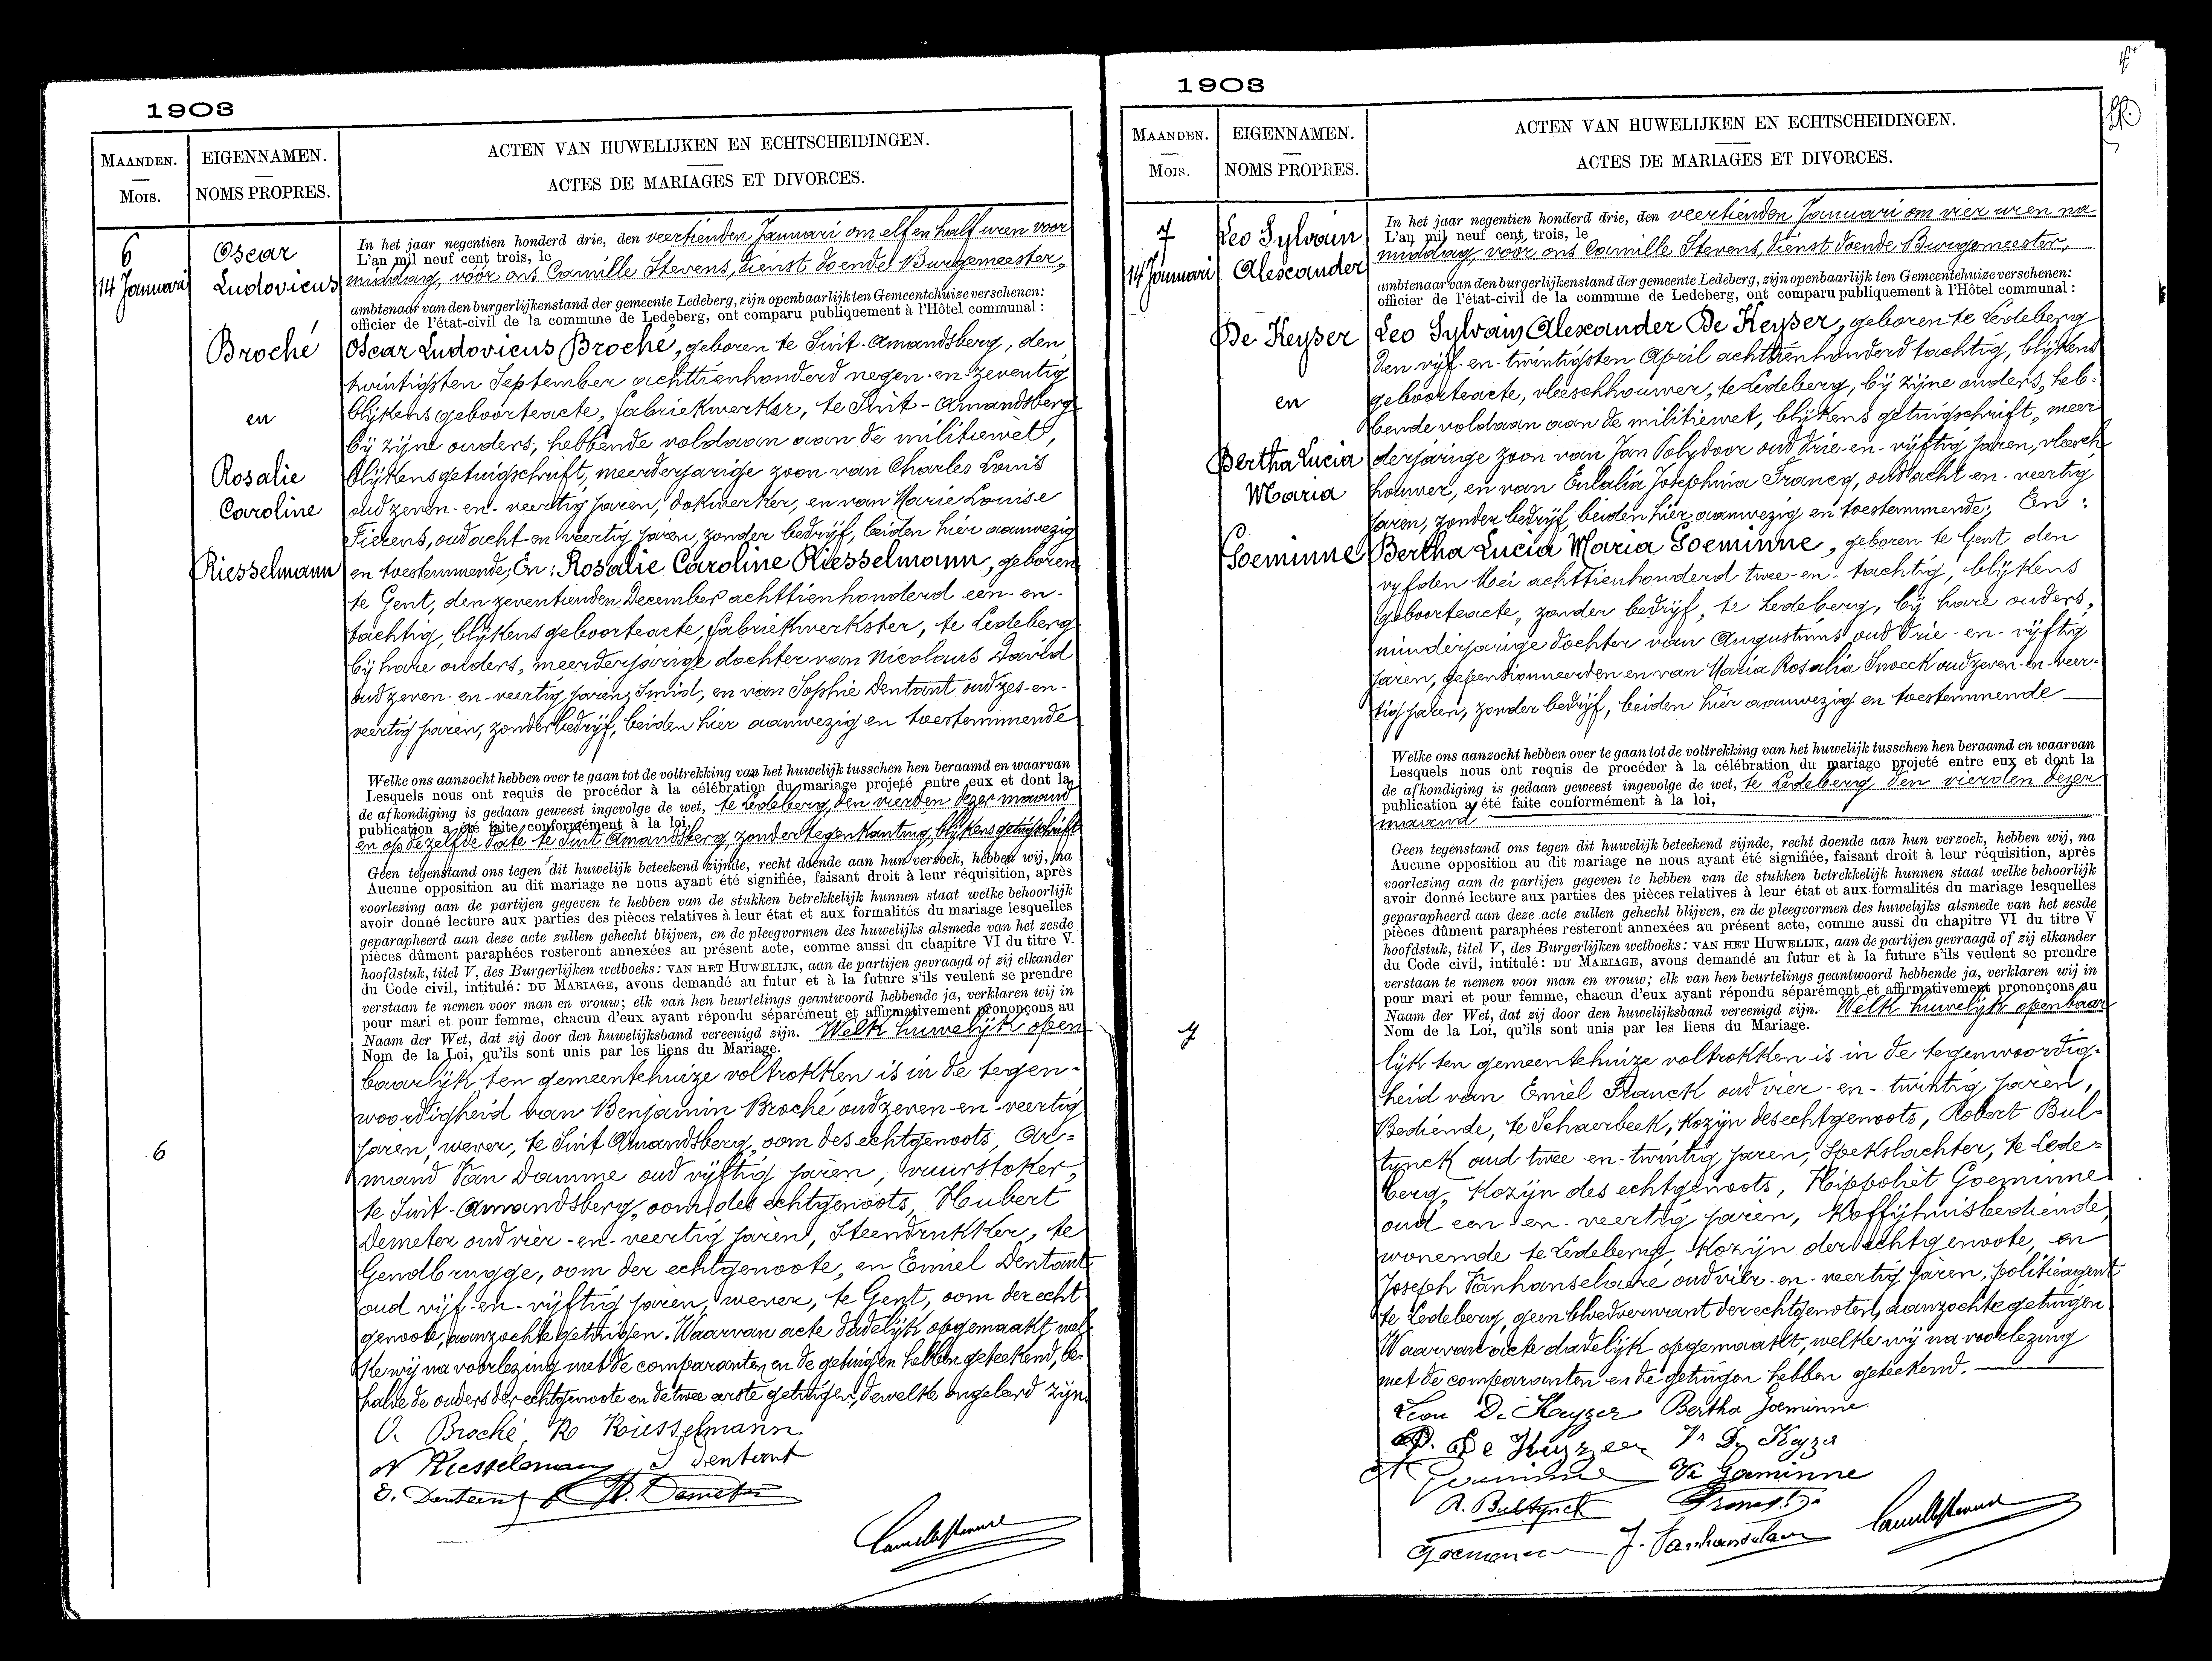 1903
MAANDEN.
Mois.
EIGENNAMEN.
NOMS PROPRES.
ACTEN VAN HUWELIJKEN EN ECHTSCHEIDINGEN.
ACTES DE MARIAGES ET DIVORCES.
6
14 Januari
Oscar
Ludovicus
Broché
en
Rosalie
Caroline
Riesselmann
6
In het jaar negentien honderd drie, den veertienden Januari om elf en half uren voor
L'an mil neuf cent trois, le
middag, vóór ons Camille Stevens, dienst doende Burgemeester,
ambtenaar van den burgerlijken stand der gemeente Ledeberg, zijn openbaarlijk ten Gemeentehuize verschenen:
officier de l'état-civil de la commune de Ledeberg, ont comparu publiquement à l'Hôtel communal :
Oscar Ludovicus Broché, geboren te Sint-Amandsberg, den
twintigsten September achttienhonderd negen-en-zeventig
blijkens geboorteacte, fabriekwerker, te Sint-Amandsberg
bij zijne ouders, hebbende voldaan aan de militiewet,
blijkens getuigschrift, meerderjarige zoon van Charles Louis
oud zeven-en-veertig jaren, dokwerker, en van Marie Louise
Fierens, oud acht-en veertig jaren, zonder bedrijf, beiden hier aanwezig
en toestemmende; En: Rosalie Caroline Riesselmann, geboren
te Gent, den zeventienden December achttienhonderd een-en-
tachtig, blijkens geboorteacte, fabriekwerkster, te Ledeberg
bij hare ouders, meerderjarige dochter van Nicolaus David
oud zeven-en-veertig jaren, Smid, en van Sophie Dentant oud zes-en-
veertig jaren, zonder bedrijf, beiden hier aanwezig en toestemmende
Welke ons aanzocht hebben over te gaan tot de voltrekking van het huwelijk tusschen hen beraamd en waarvan
Lesquels nous ont requis de procéder à la célébration du mariage projeté entre eux et dont la
de afkondiging is gedaan geweest ingevolge de wet, te Ledeberg, den vierden dezer maand
publication a été faite conformément à la loi,
en op dezelfde date te Sint Amandsberg, zonder tegenkanting, blijkens getuigschrift
Geen tegenstand ons tegen dit huwelijk beteekend zijnde, recht doende aan hun verzoek, hebben wij, na
Aucune opposition au dit mariage ne nous ayant été signifiée, faisant droit à leur réquisition, après
voorlezing aan de partijen gegeven te hebben van de stukken betrekkelijk hunnen staat welke behoorlijk
avoir donné lecture aux parties des pièces relatives à leur état et aux formalités du mariage lesquelles
geparapheerd aan deze acte zullen gehecht blijven, en de pleegvormen des huwelijks alsmede van het zesde
pièces dûment paraphées resteront annexées au présent acte, comme aussi du chapitre VI du titre V.
hoofdstuk, titel V, des Burgerlijken wetboeks: VAN HET HUWELIJK, aan de partijen gevraagd of zij elkander
du Code civil, intitulé: DU MARIAGE, avons demandé au futur et à la future s'ils veulent se prendre
verstaan te nemen voor man en vrouw; elk van hen beurtelings geantwoord hebbende ja, verklaren wij in
pour mari et pour femme, chacun d'eux ayant répondu séparément et affirmativement prononçons au
Naam der Wet, dat zij door den huwelijksband vereenigd zijn. Welk huwelijk open
Nom de la Loi, qu'ils sont unis par les liens du Mariage.
baarlijk ten gemeentehuize voltrokken is in de tegen-
woordigheid van Benjamin Broché oud zeven-en-veertig
jaren, wever, te Sint Amandsberg, oom des echtgenoots, Ar=
mand Van Damme oud vijftig jaren, vuurstoker,
te Sint-Amandsberg, oom des echtgenoots, Hubert
Demeter oud vier-en-veertig jaren, Steendrukker, te
Gendbrugge, oom der echtgenoote, en Emiel Dentant
oud vijf-en-vijftig jaren, wever, te Gent, oom der echt
genoote, aanzochte getuigen. Waarvan acte dadelijk opgemaakt wel
ke wij na voorlezing met de comparanten en de getuigen hebben geteekend, be-
halve de ouders der echtgenoote en de twee eerste getuigen, dewelke ongeleerd zijn.
O. Broché R Riesselmann
N Riesselman S Dentant
E. Dentant H. Demeter
Camille Stevens
1903
MAANDEN.
Mois.
EIGENNAMEN.
NOMS PROPRES.
ACTEN VAN HUWELIJKEN EN ECHTSCHEIDINGEN.
ACTES DE MARIAGES ET DIVORCES.
7
14 Januari
Leo Sylvain
Alexander
De Keyser
en
Bertha Lucia
Maria
Goeminne
7
In het jaar negentien honderd drie, den veertienden Januari om vier uren na
L'an mil neuf cent trois, le
middag, vóór ons Camille Stevens, dienst doende Burgemeester,
ambtenaar van den burgerlijken stand der gemeente Ledeberg, zijn openbaarlijk ten Gemeentehuize verschenen:
officier de l'état-civil de la commune de Ledeberg, ont comparu publiquement à l'Hôtel communal :
Leo Sylvain Alexander De Keyser, geboren te Ledeberg
den vijf-en-twintigsten April achttienhonderd tachtig, blijkens
geboorteacte, vleeschhouwer, te Ledeberg, bij zijne ouders, heb-
bende voldaan aan de militiewet, blijkens getuigschrift, meer
derjarige zoon van Jan Polydoor oud drie-en-vijftig jaren, vleesch
houwer, en van Eulalia Josephina Francq, oud acht-en-veertig
jaren, zonder bedrijf, beiden hier aanwezig en toestemmende; En:
Bertha Lucia Maria Goeminne, geboren te Gent den
vyfden Mei achttienhonderd twee-en-tachtig, blijkens
geboorteacte, zonder bedrijf, te Ledeberg, bij hare ouders,
minderjarige dochter van Augustinus oud drie-en-vijftig
jaren, gepentionneerden en van Maria Rosalia Snoeck oud zeven-en-veer-
tig jaren, zonder bedrijf, beiden hier aanwezig en toestemmende
Welke ons aanzocht hebben over te gaan tot de voltrekking van het huwelijk tusschen hen beraamd en waarvan
Lesquels nous ont requis de procéder à la célébration du mariage projeté entre eux et dont la
de afkondiging is gedaan geweest ingevolge de wet, te Ledeberg den vierden dezer
publication a été faite conformément à la loi,
maand
Geen tegenstand ons tegen dit huwelijk beteekend zijnde, recht doende aan hun verzoek, hebben wij, na
Aucune opposition au dit mariage ne nous ayant été signifiée, faisant droit à leur réquisition, après
voorlezing aan de partijen gegeven te hebben van de stukken betrekkelijk hunnen staat welke behoorlijk
avoir donné lecture aux parties des pièces relatives à leur état et aux formalités du mariage lesquelles
geparapheerd aan deze acte zullen gehecht blijven, en de pleegvormen des huwelijks alsmede van het zesde
pièces dûment paraphées resteront annexées au présent acte, comme aussi du chapitre VI du titre V
hoofdstuk, titel V, des Burgerlijken wetboeks: VAN HET HUWELIJK, aan de partijen gevraagd of zij elkander
du Code civil, intitulé: DU MARIAGE, avons demandé au futur et à la future s'ils veulent se prendre
verstaan te nemen voor man en vrouw; elk van hen beurtelings geantwoord hebbende ja, verklaren wij in
pour mari et pour femme, chacun d'eux ayant répondu séparément et affirmativement prononçons au
Naam der Wet, dat zij door den huwelijksband vereenigd zijn. Welk huwelijk openbaar
Nom de la Loi, qu'ils sont unis par les liens du Mariage.
lijk ten gemeentehuize voltrokken is in de tegenwoordig-
heid van Emiel Franck oud vier-en-twintig jaren,
Bediende, te Schaerbeek, Kozijn des echtgenoots, Robert Bul=
tynck oud twee-en-twintig jaren, Spekslachter, te Lede=
berg, Kozijn des echtgenoots, Hippoliet Goeminne
oud een-en-veertig jaren, Koffijhuisbediende,
wonende te Ledeberg, Kozijn der echtgenoote, en
Joseph Vanhanselaere oud vier-en-veertig jaren, politieagent
te Ledeberg, geen bloedverwant der echtgenoten, aanzochte getuigen
Waarvan acte dadelijk opgemaakt, welke wij na voorlezing
met de comparanten en de getuigen hebben geteekend.
Leon De Keyzer Bertha Goeminne
P. De Keyzer De Keyzer
Goeminne Goeminne
R. Bultynck
J. Vanhanselaere Camille Stevens